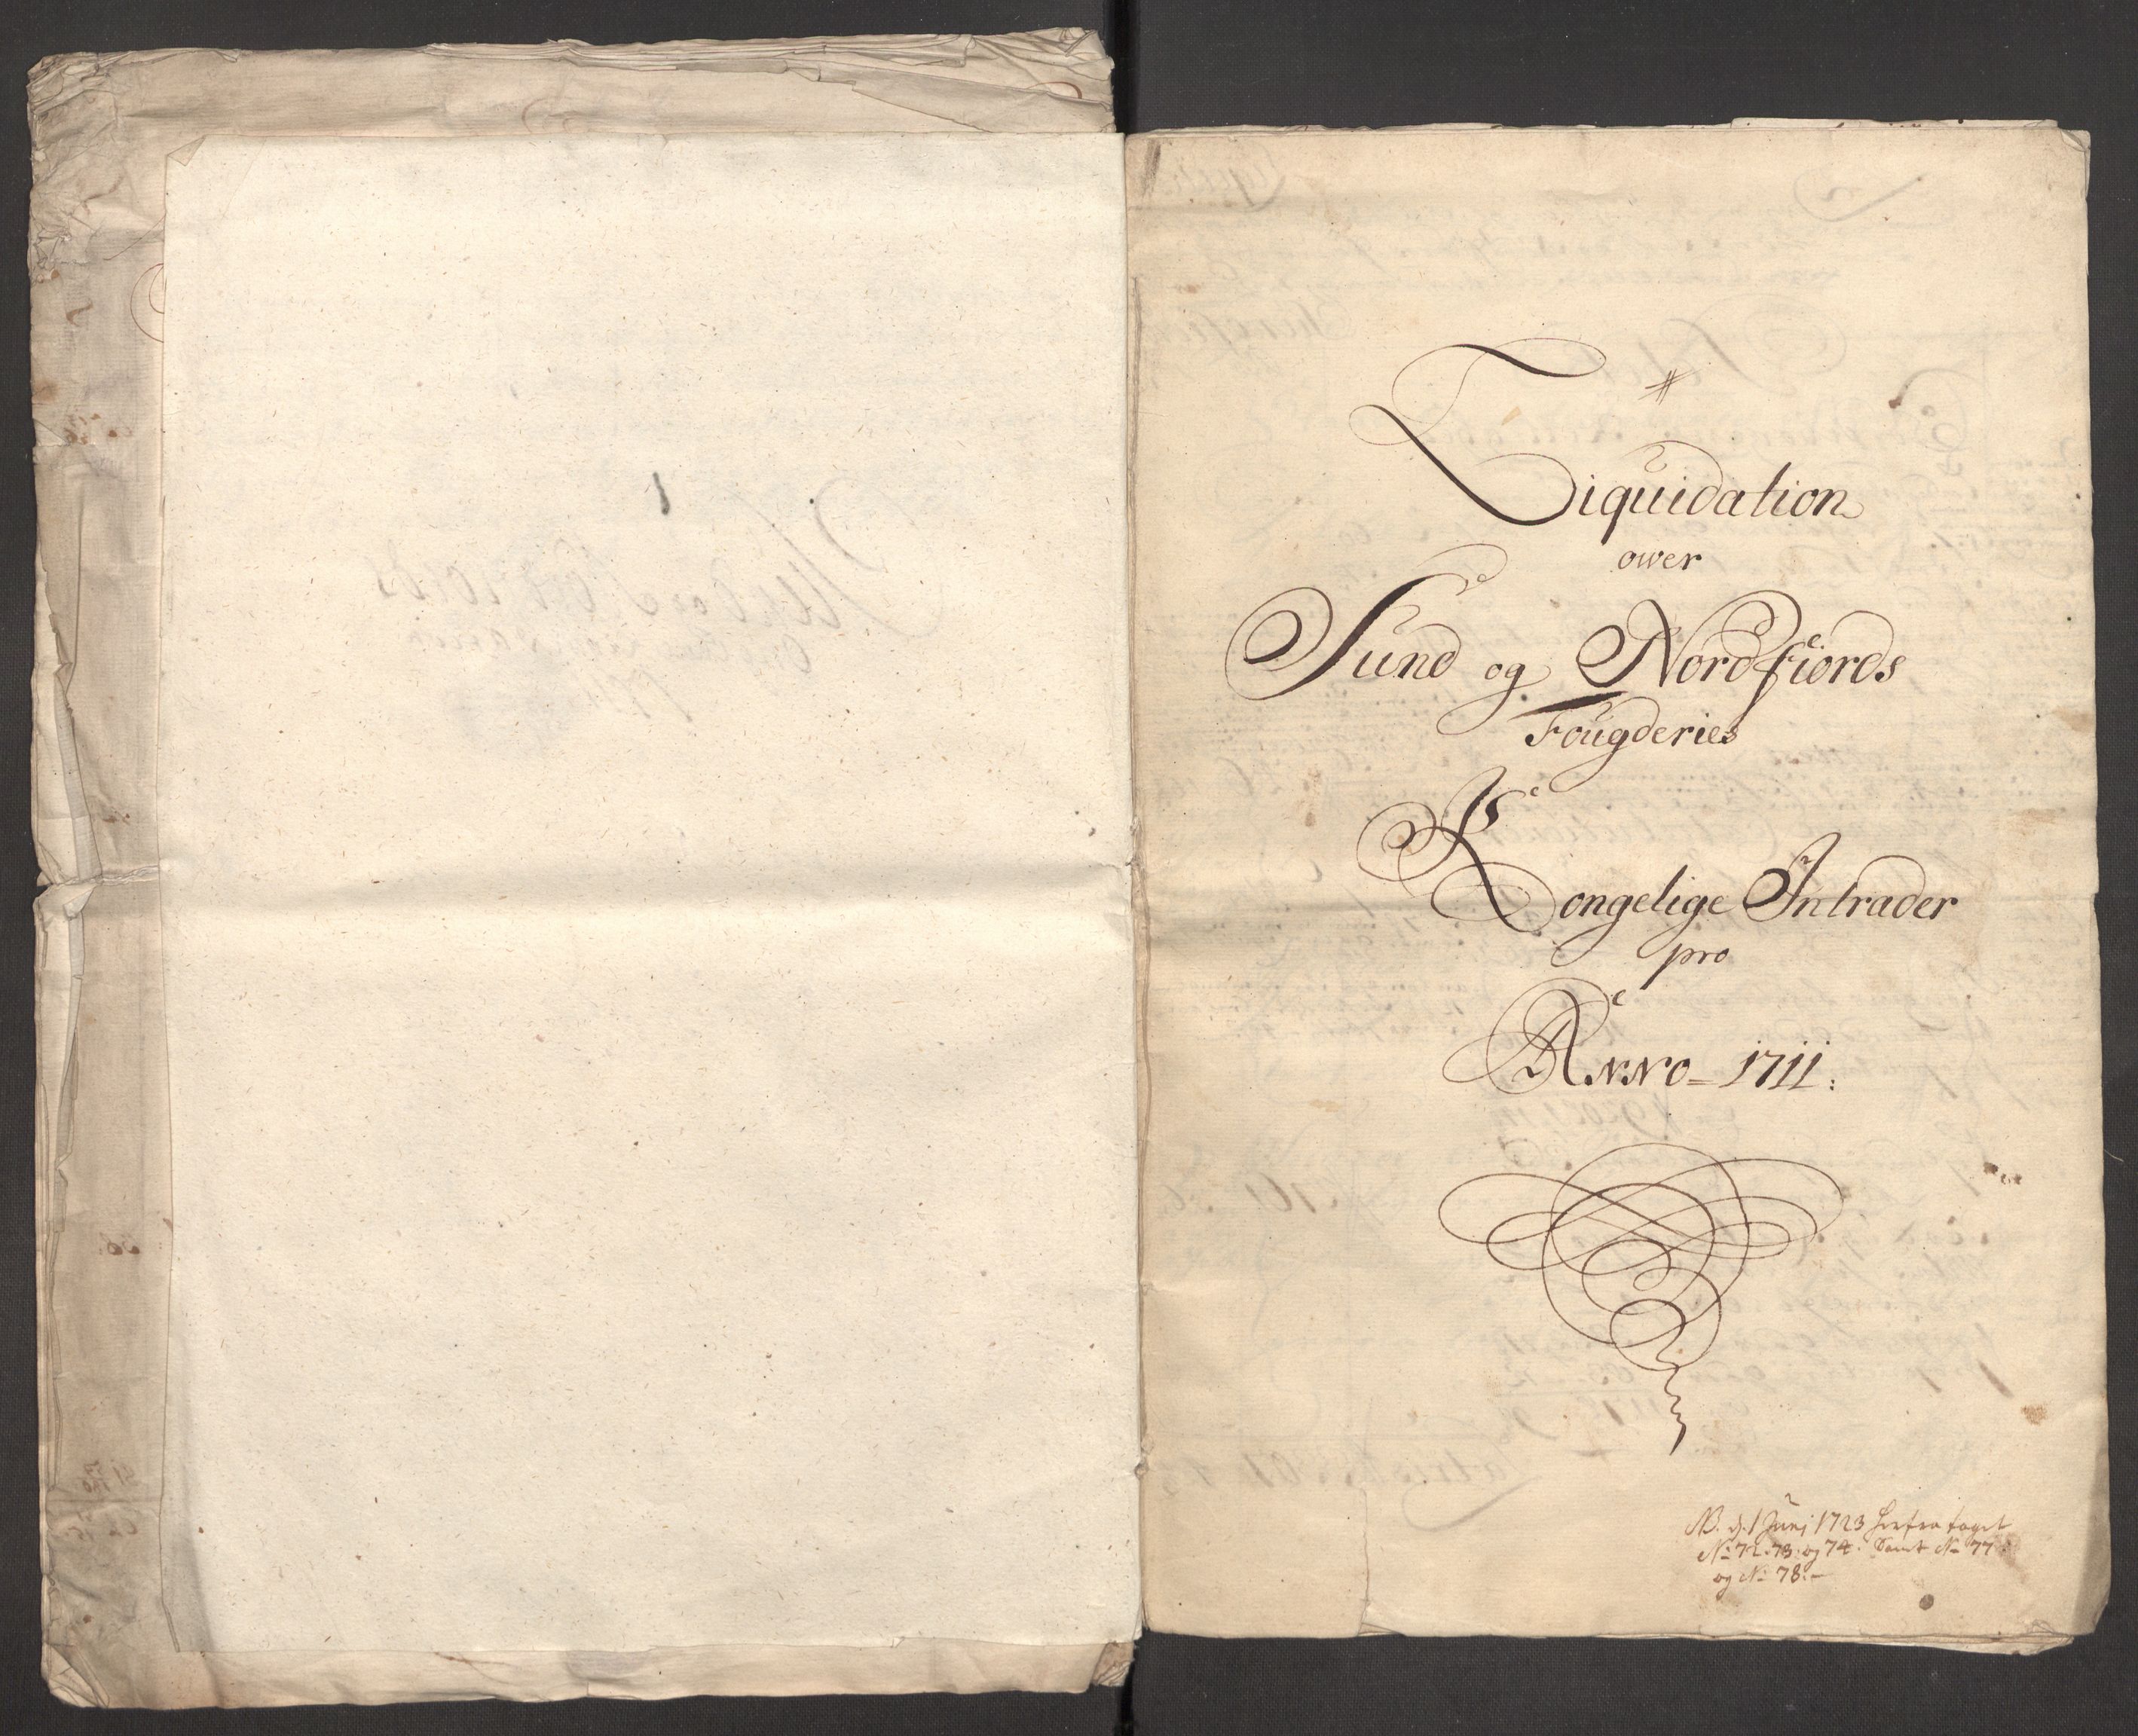 Liquidation
ower
Sund og Nordfiords
Fougderies
Kongelige Intrader
pro
Anno 1711:
NB. d. 1 Junj 1723 herfra taget
No 72. 73. og 74. Samt No 77
og No 78.